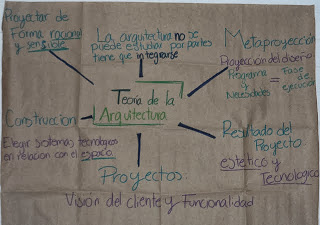 Proyectar de
Forma racional
y sensible
La arquitectura no se
puede estudiar por partes
tiene que integrarse
Metaproyección
Proyección del diseño
Programa y Necesidades = Fase de ejecución
Teoría de la
Arquitectura
Construcción
Elegir sistemas tecnológicos
en relación con el espacio
Proyectos:
Visión del cliente y funcionalidad
Resultado del
Proyecto
estético y
Tecnológico